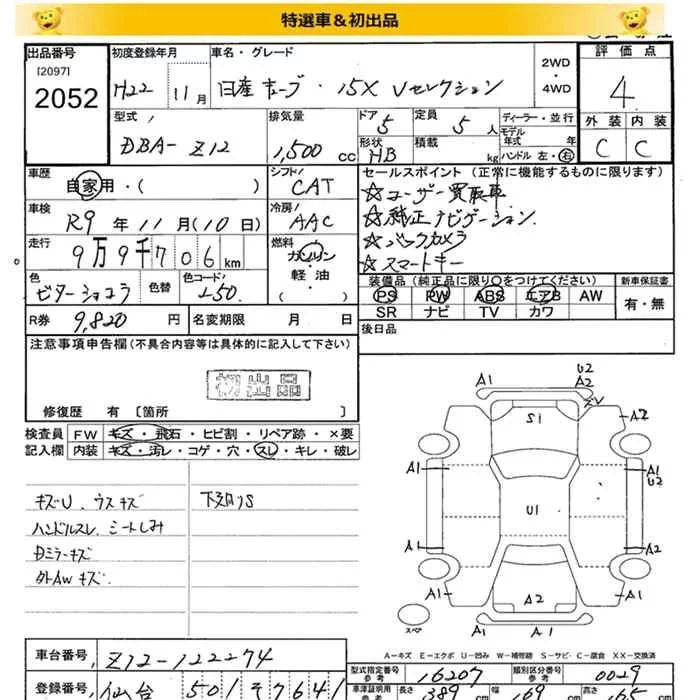 特選車&初出品
出品番号
[2097]
2052
初度登録年月
H22 11月
車名・グレード
日産キューブ・15X Vセレクション
2WD
・
4WD
評価点
4
外装 内装
C C
型式
DBA- Z12
排気量
1,500 cc
ドア
5
形状
HB
定員
5 人
積載
kg
ディーラー・並行
モデル
年式 年
ハンドル 左・右
車歴
自家用・( )
シフト
CAT
車検
R9 年 11 月(10 日)
冷房
AAC
走行
9万9千706 km
燃料
ガソリン
軽・油
( )
色
ビターショコラ
色替
色コード
L50
R券 9,820 円
名変期限 月 日
セールスポイント(正常に機能するものに限ります)
☆ユーザー買取車
☆純正ナビゲーション
☆バックカメラ
☆スマートキー
装備品(純正品に限り○をつけてください)
PS PW ABS エアB AW
SR ナビ TV カワ
新車保証書
有・無
後日品
注意事項申告欄(不具合内容等は具体的に記入して下さい)
初出品
修復歴 有 [箇所 ]
検査員
記入欄
FW キズ・飛石・ヒビ割・リペア跡・×要
内装 キズ・汚レ・コゲ・穴・スレ・キレ・破レ
キズU、ウスキズ
ハンドルスレ、シートしみ
Dミラーキズ
外AWキズ
下回りS
A1
U2
A2
S1
A2
A1
A1
U2
U1
A1
A2
A1
A2
A1
A1
A1
スペア
A-キズ E-エクボ U-凹み W-補修跡 S-サビ・C-腐食 XX-交換済
車台番号 Z12-122274
登録番号 仙台 501 そ 7641
型式指定番号
参考 16207
類別区分番号
参考 0029
車検証明用
参考
長さ 389 幅 169 高さ 165